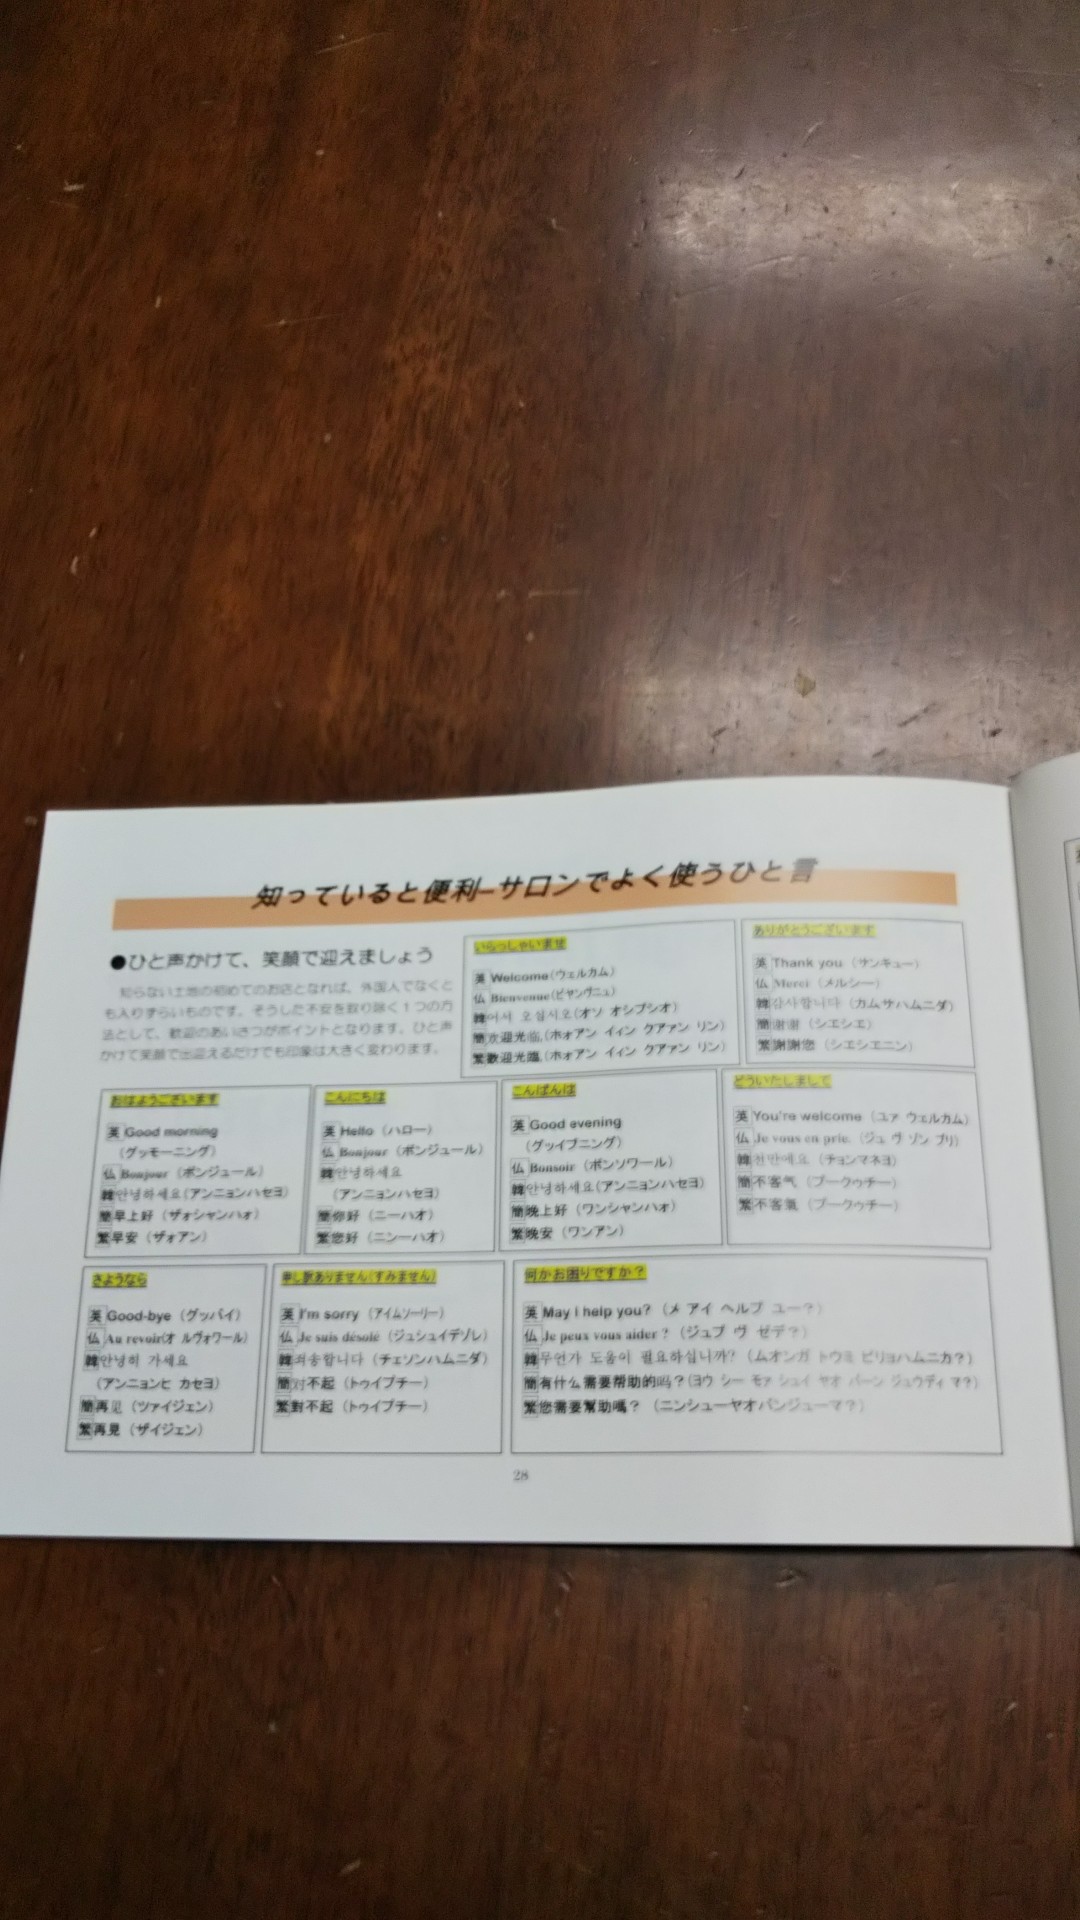 知っていると便利–サロンでよく使うひと言
●ひと声かけて、笑顔で迎えましょう
知らない土地の初めてのお店となれば、外国人でなくと
も入りずらいものです。そうした不安を取り除く1つの方
法として、歓迎のあいさつがポイントとなります。ひと声
かけて笑顔で出迎えるだけでも印象は大きく変わります。
いらっしゃいませ
英 Welcome(ウェルカム)
仏 Bienvenue(ビヤンヴニュ)
韓 어서 오십시오(オソ オシプシオ)
簡 欢迎光临,(ホォアン イィン クアァン リン)
繁 歡迎光臨,(ホォアン イィン クアァン リン)
ありがとうございます
英 Thank you（サンキュー）
仏 Merci（メルシー）
韓 감사합니다（カムサハムニダ）
簡 谢谢（シエシエ）
繁 謝謝您（シエシエニン）
おはようございます
英 Good morning
（グッモーニング）
仏 Bonjour（ボンジュール）
韓 안녕하세요(アンニョンハセヨ)
簡 早上好（ザォシャンハォ）
繁 早安（ザォアン）
こんにちは
英 Hello（ハロー）
仏 Bonjour（ボンジュール）
韓 안녕하세요
（アンニョンハセヨ）
簡 你好（ニーハオ）
繁 您好（ニンーハオ）
こんばんは
英 Good evening
（グッイブニング）
仏 Bonsoir（ボンソワール）
韓 안녕하세요(アンニョンハセヨ)
簡 晚上好（ワンシャンハォ）
繁 晚安（ワンアン）
どういたしまして
英 You're welcome（ユァ ウェルカム）
仏 Je vous en prie.（ジュ ヴ ゾン プリ）
韓 천만에요（チョンマネヨ）
簡 不客气（ブークゥチー）
繁 不客氣（ブークゥチー）
さようなら
英 Good-bye（グッバイ）
仏 Au revoir(オ ルヴォワール)
韓 안녕히 가세요
（アンニョンヒ カセヨ）
簡 再见（ツァイジェン）
繁 再見（ザイジェン）
申し訳ありません(すみません)
英 I'm sorry（アイムソーリー）
仏 Je suis désolé（ジュシュイデゾレ）
韓 죄송합니다（チェソンハムニダ）
簡 对不起（トゥイブチー）
繁 對不起（トゥイブチー）
何かお困りですか？
英 May I help you?（メ アイ ヘルプ ユー？）
仏 Je peux vous aider ?（ジュプ ヴ ゼデ？）
韓 무언가 도움이 필요하십니까?（ムオンガ トウミ ピリョハムニカ？）
簡 有什么需要帮助的吗？(ヨウ シー モァ シュイ ヤオ バーン ジュウディ マ？)
繁 您需要幫助嗎？（ニンシューヤオバンジューマ？）
28